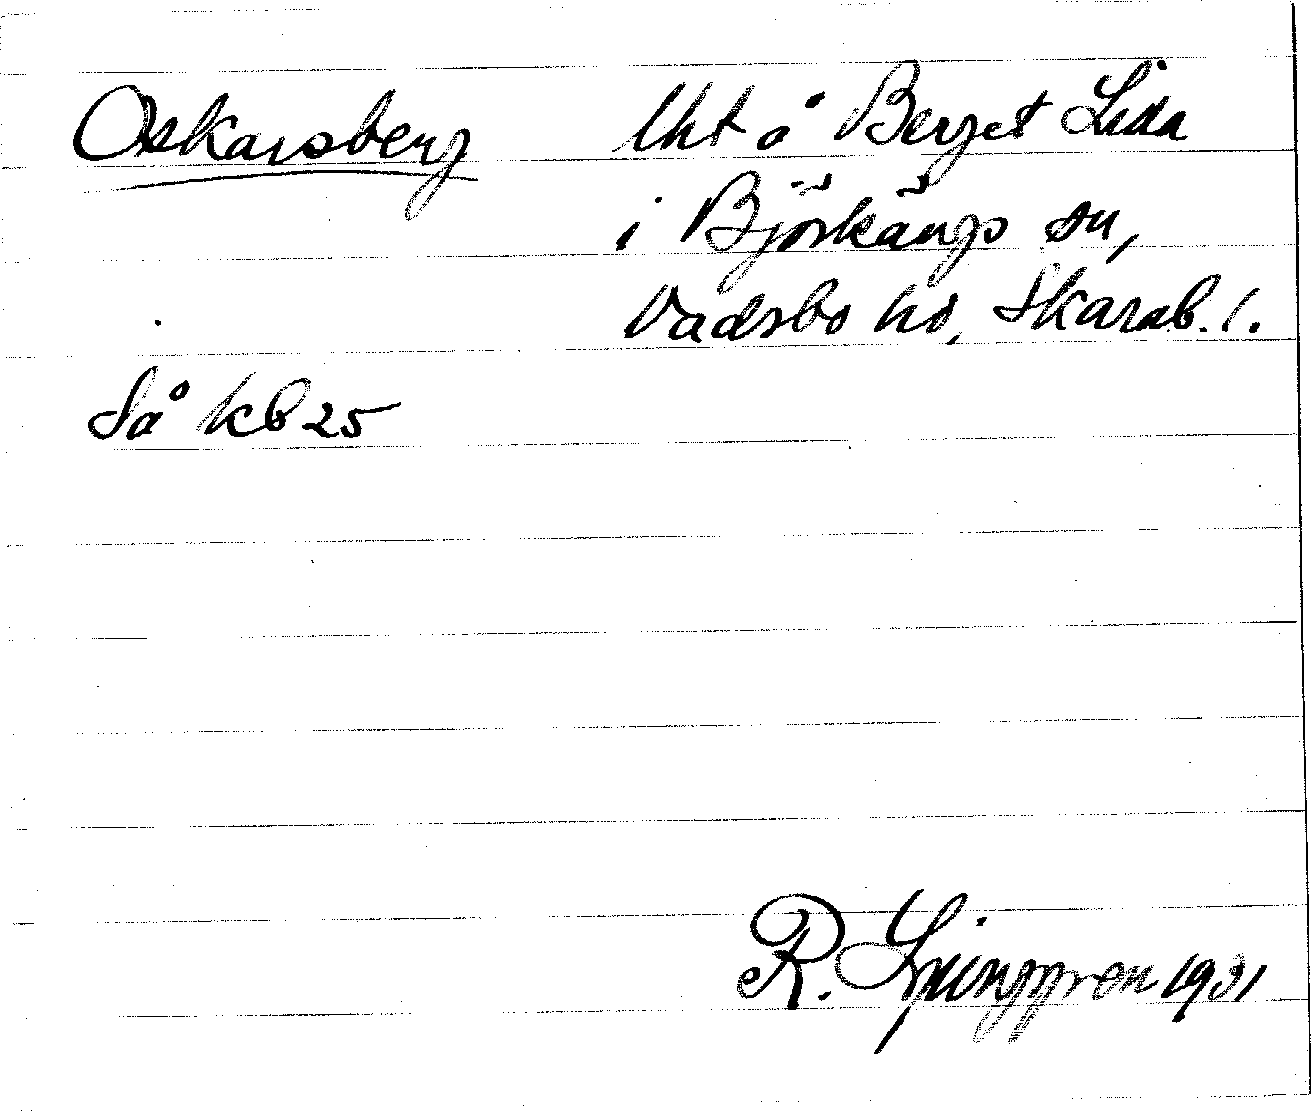 Oskarsberg
Lht å Berget Lida
i Björkängs sn,
Vadsbo hd, Skarab. l.
Så kb 25
R. Ljunggren 1931